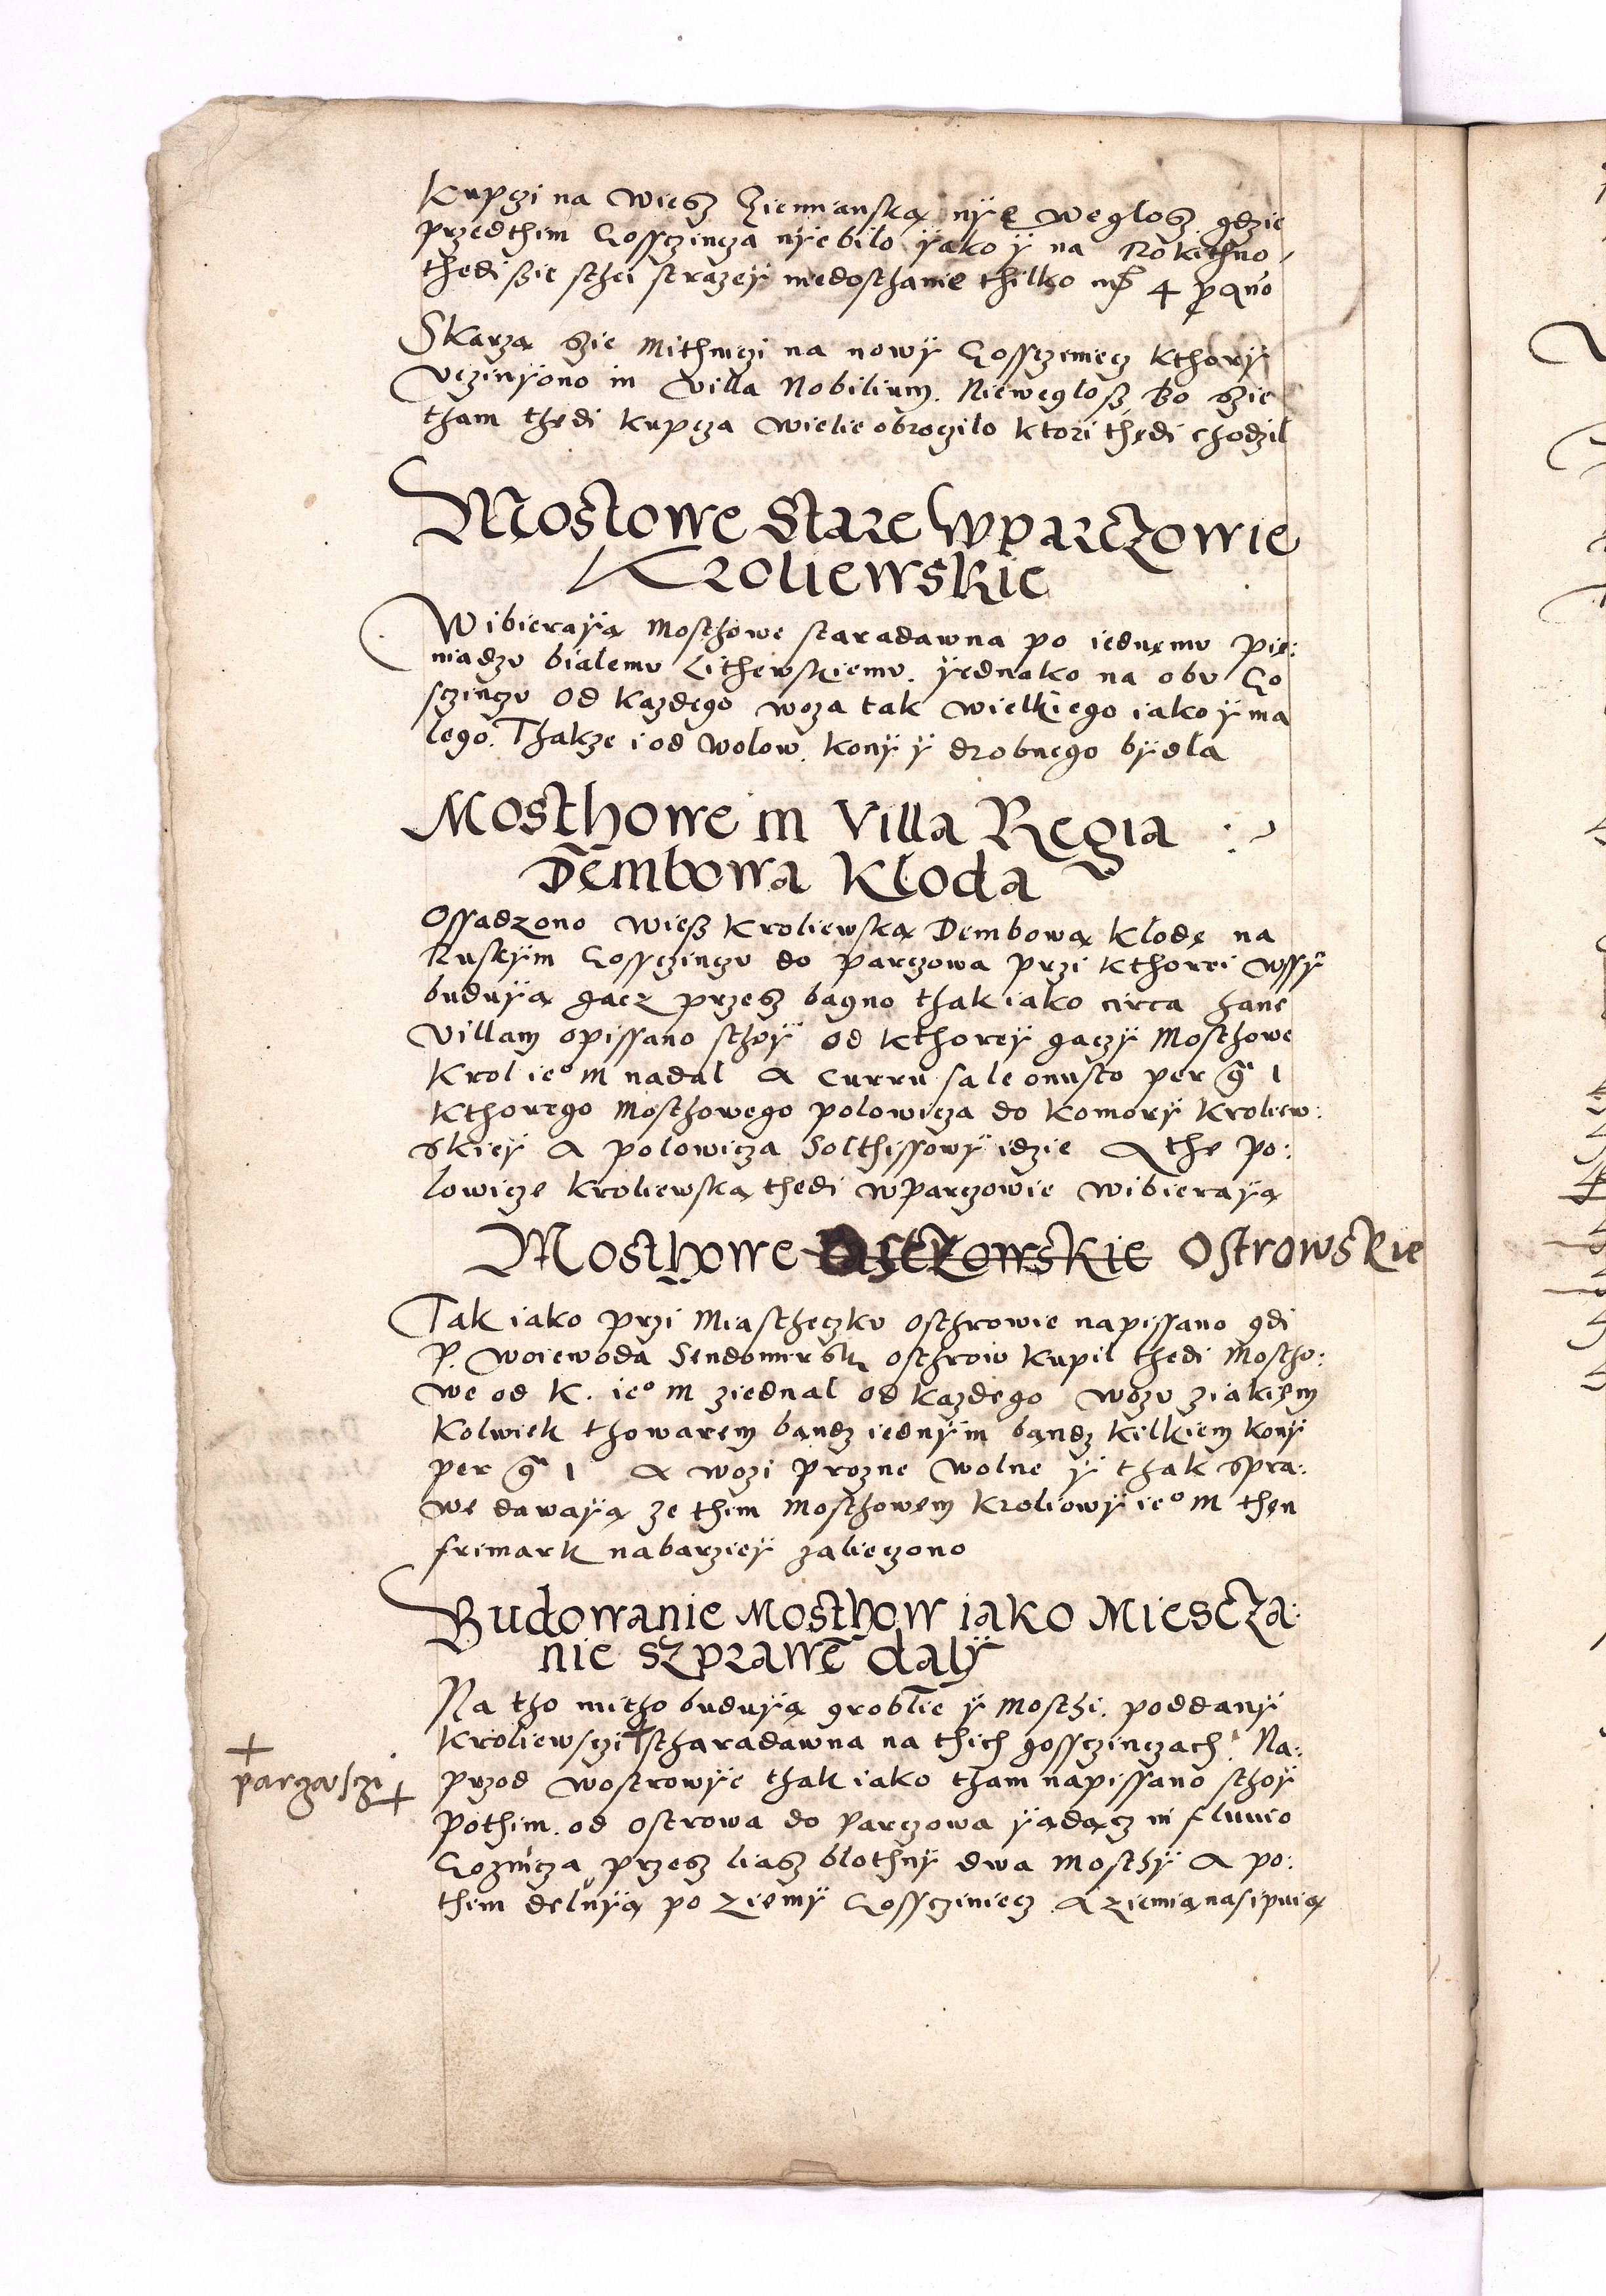 Kupczi na wiesz Ziemianską nÿe Weglosz gdzie
przedthim Gossczincza nÿebilo ÿako ÿ na Rokithno,
thedi ßie sthei strazeÿ niedosthanie thilko 4
Skarzą szie Mithniczi na nowÿ Gossczieniecz kthorÿ
vczinÿono in villa Nobilium. Nieweglosz Bo szie
tham thedi kupcza wielie obroczilo ktori thedi chodzil
Mostowe Stare wparczowie
Kroliewskie
Wibieraÿą mosthowe staradawna po iednemv pie:
niadzv bialemv Lithewskiemv. ÿednako na obv Go
sczinczv od kazdego woza tak wielkiego iako ÿ ma
lego. Thakze i od wolow. konÿ ÿ drobnego bÿdla
Mosthowe in Villa Regia
Dembowa Kloda
Ossadzono wieß kroliewską Dembową klodę na
Ruskÿm Gossczinczv do parczowa przi kthorei wssÿ
buduÿą gacz przesz bagno thak iako circa hanc
villam opissano sthoÿ od kthoreÿ gaczÿ Mosthowe
krol ieº m nadal a curru sale onusto per gr 1
kthorego Mosthowego polowicza do komorÿ kroliew:
skieÿ a polowicza Solthissowÿ idzie A the po:
lowicze kroliewską thedi wparczowie wibieraÿą
Mosthowe Ostrowskie
Tak iako przi Miastheczkv osthrowie napissano gdi
P. woiewoda Sendomirsk osthrow kupil thedi mostho:
we od K. ieº m ziednal od kazdego wozv ziakiem
kolwiek thowarem bandz iednÿm bandz kilkiem konÿ
per gr 1 a wozi prozne wolne ÿ thak spra:
we dawaÿą ze thim mosthowem kroliowÿ ieº m then
frimark nabarzieÿ zaliczono
Budowanie Mosthow iako Miescza:
nie szprawe dalÿ
Na tho mitho buduÿą groblie ÿ mosthi. poddanÿ
kroliewsczi + stharadawna na thich gossczinczach. Na:
+
parczewsczi +
przod wostrowÿe thak iako tham napissano sthoÿ
pothim. od ostrowa do Parczowa ÿadącz in fluvio
przesz liasz blothnÿ dwa mosthÿ a po:
them deluÿą po ziemÿ Gossczieniecz a ziemią nasipuią